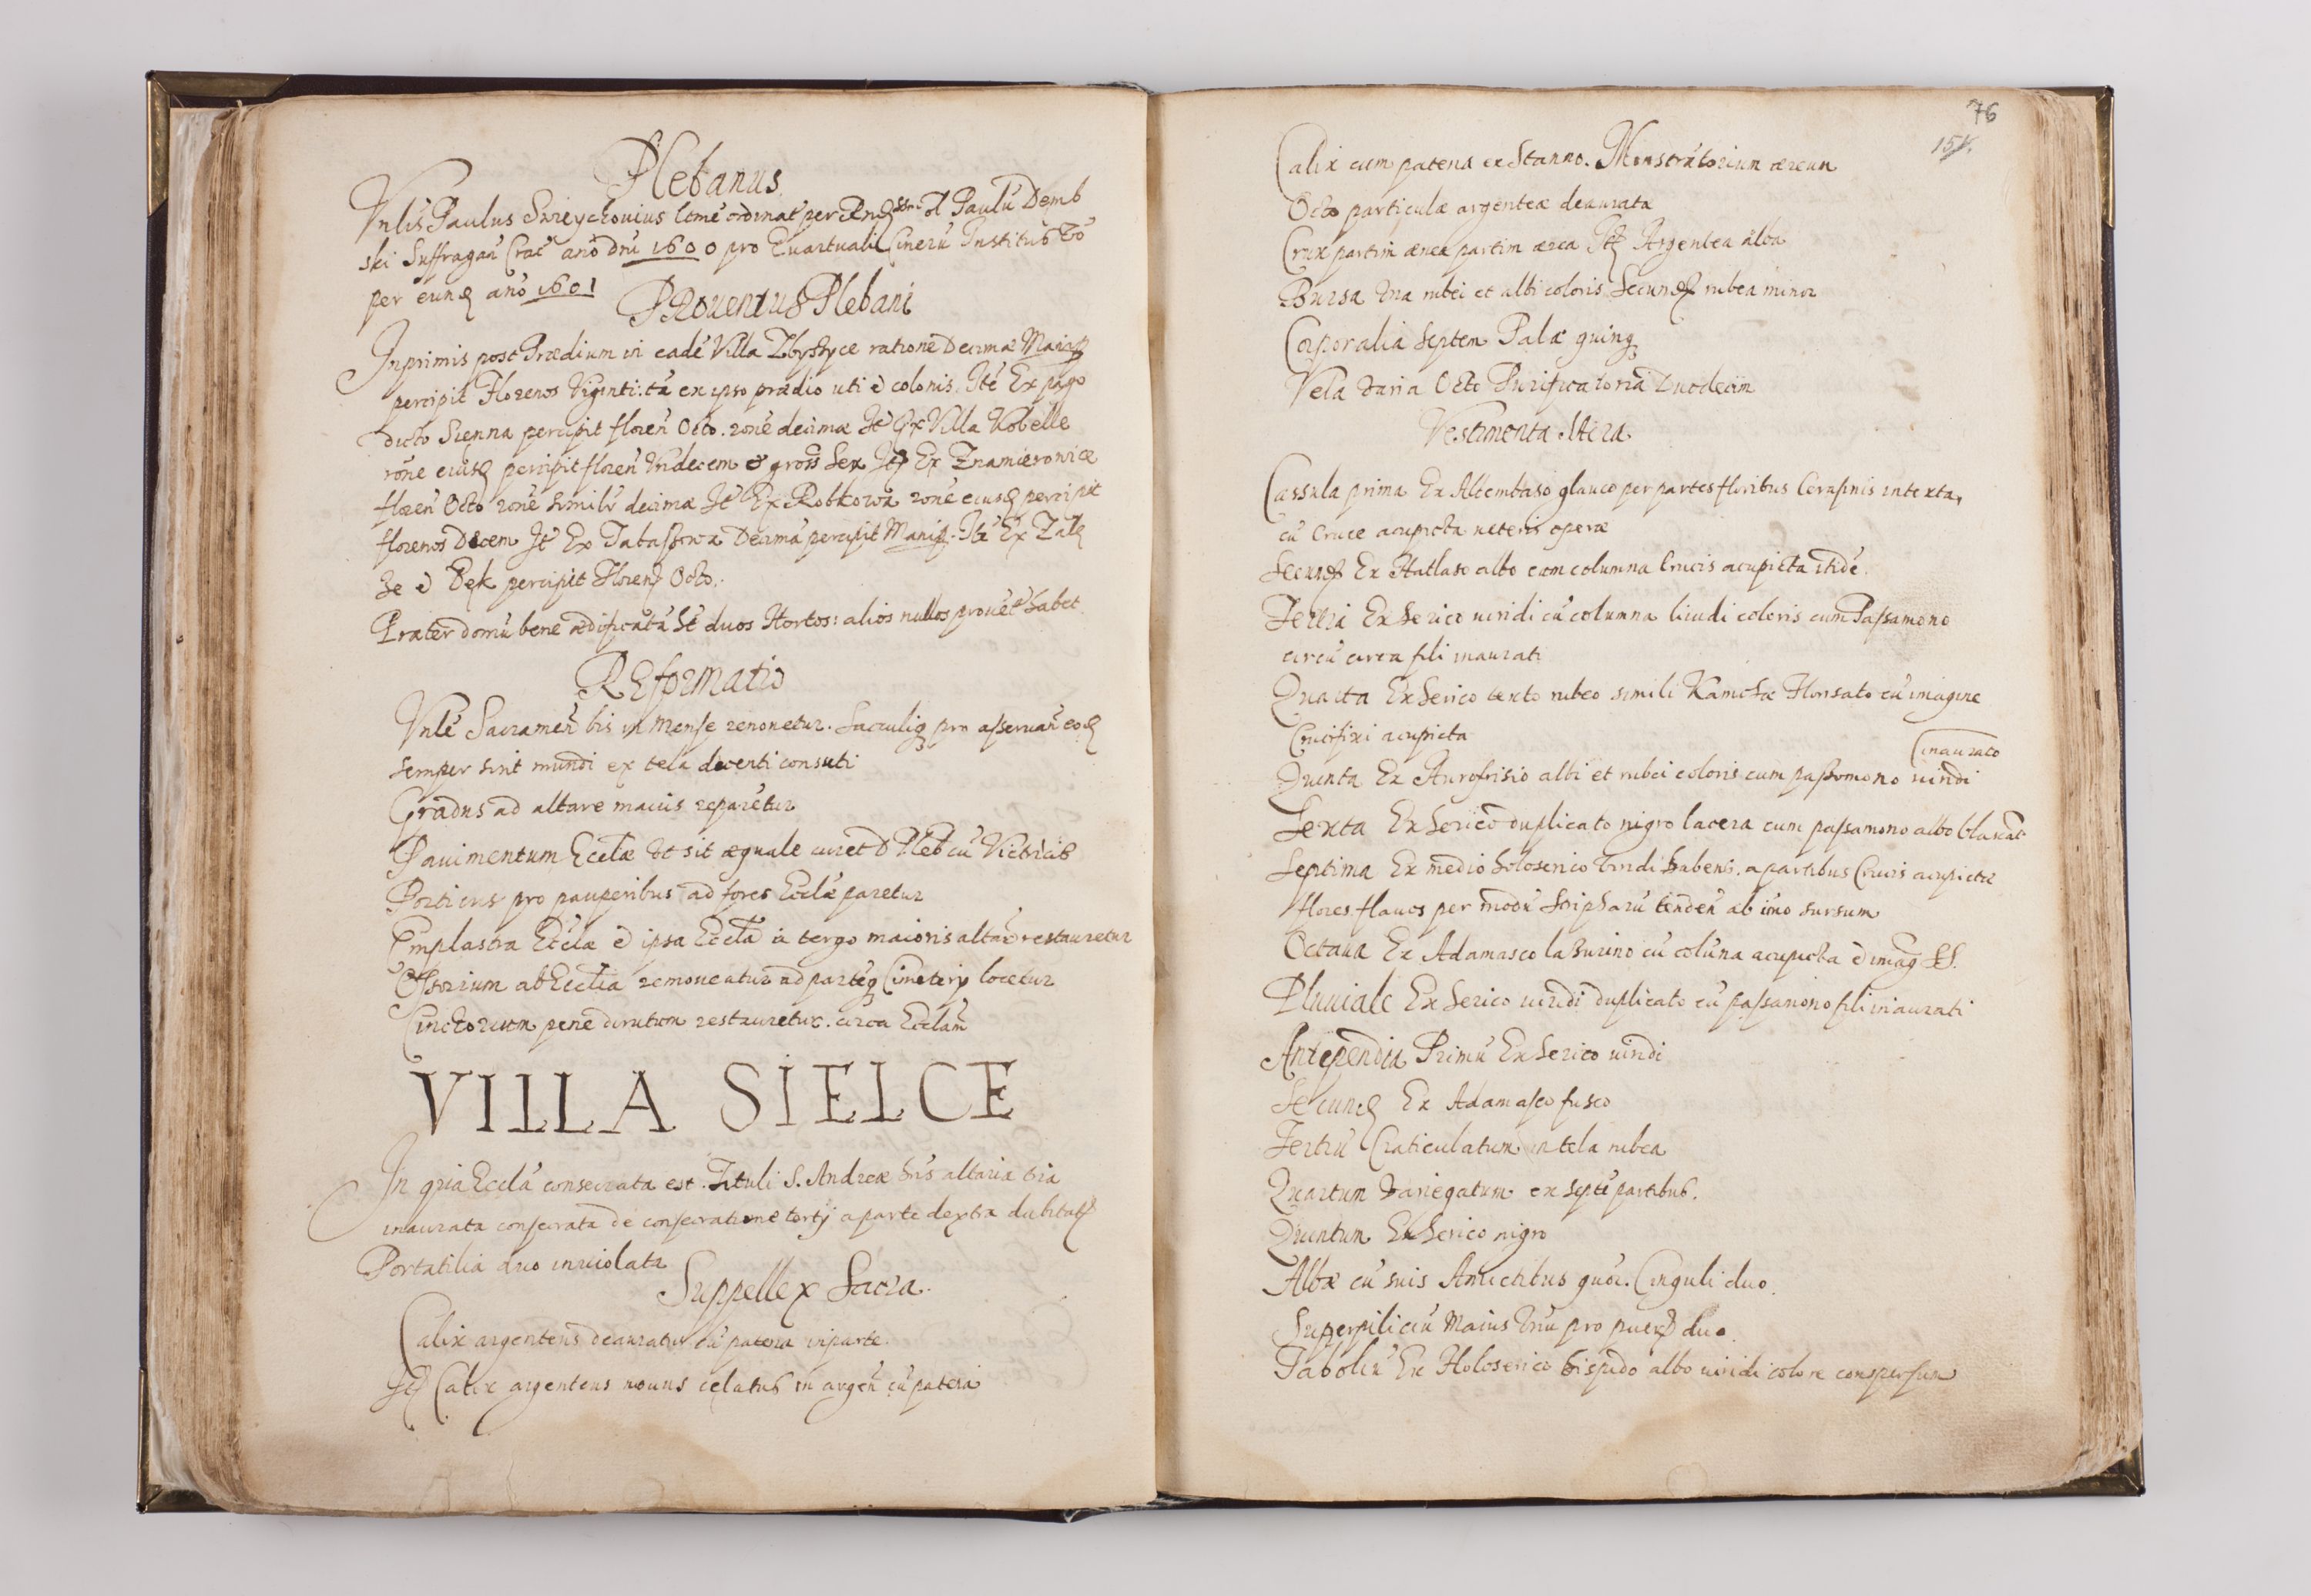 Plebanus
Vnlis Paulus legmē ordinat per Rnd Paulū Demb
ski Suffragan Crac anō dnī 1600 pro Quartuali Cinerū Institut
per eund anō 1601
PRouentus Plebani
Inprimis post Prædium in eadē Villa Zbyszyce ratione Decimæ Manip
percipit Florenos Viginti: tā ex ipso prædio uti è colonis. Itē Ex pago
dicto Sienna percipit floren Octo. ronē decimæ It Ex Villa Kobelle
ronē eiusd percipit floren Vndecem & gross Sex It Ex Znamierowice
floren Octo ronē simily decimæ It Ex Robkowa ronē eiusd percipit
florenos Decem It Ex Tabaszowa Decimā percipit Manip. Itē Ex Zale
se è Bęk percipit Floren Octo.
Præter domū bene ædificatā et duos Hortos: alios nullos prouēt habet
REformatio
Vnlē Sacramen bis in Mense renonetur. Sacculiq pro asseruan eod
semper sint mundi ex tela decenti consuti
Gradus ad altare maius reparētur
Pauimentum Eccłæ Vt sit æquale curet D Pleb cū Vitricis
Porticus pro pauperibus ad fores Eccłæ paretur
Emplastra Eccłæ è ipsa Eccła à tergo maioris altaris restauretur
Ossorium ab Eccłia remoueatur ad partēq Cimeterij locetur
Cinctorium pene dirutum restauretur. circa Eccłam
VILLA SIELCE
In qua Eccłā consecrata est. Tituli S. Andreæ hūs altaria tria
inaurata consecrata de consecratione tertij a parte dextra dubitat
Portatilia duo inuiolata
Suppellex Sacra.
Calix argenteus deauratus cū patena in parte.
It Calix argenteus nouus celatus in argen cū patena
76
151.
Calix cum patena ex Stanno. Monstratorium æreum
Octo particulæ argenteæ deaurata
Crux partim ænea partim ærea It Argentea alba
Bursa Vna rubei et albi coloris Secund rubea minor
Corporalia Septem Palæ quinq
Vela Varia Octo Purificatoria Duodecim
Vestimenta Altera
Cassula prima Ex Altembaso glauco per partes floribus Cerasinis intexta,
cū Cruce acupicta ueteris operæ
Secund Ex Hatlaso albo cum columna Crucis acupicta itidē.
Tertia Ex Serico uiridi cū columna liuidi coloris cum Passamono
circū circa fili inaurati
Quarta Ex Serico texto rubeo simili Kamchæ Florisato cū imagine
Crucifixi acupicta
inaurato
Quinta Ex Aurofrisio albi et rubei coloris cum passomono uiridi
Sexta Ex Serico duplicato nigro lacera cum passamono albo
Septima Ex medio holoserico Viridi habens. a partibus Crucis acupictæ
flores flauos per modū tenden ab imo sursum
Octaua Ex Adamasco lasurino cū colūna acupicta è imag SS.
Pluuiale Ex Serico uiridi duplicato cū passamono fili inaurati
Antependia Primū Ex Serico uiridi
Secund Ex Adamasco fusco
Tertiū Craticulatum in tela rubea
Quartum Variegatum ex septē partibus.
Quintum Ex Serico nigro
Albæ cū suis Amictibus quor. Cinguli duo.
Superpiliciū Maius Vnū pro pueris duo.
Tabolet Ex Holoserico hispido albo uiridi colore conspersum